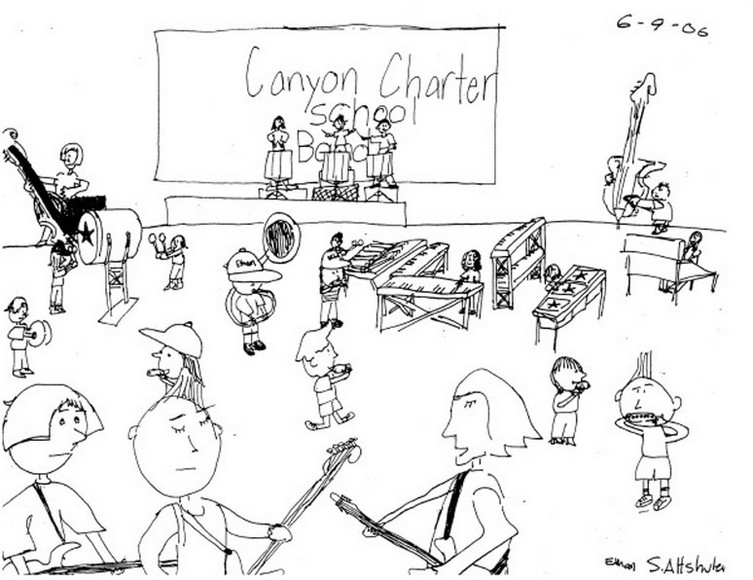 6-9-06
Canyon Charter
school
Band
Ethan
Ethan S. Altshuler